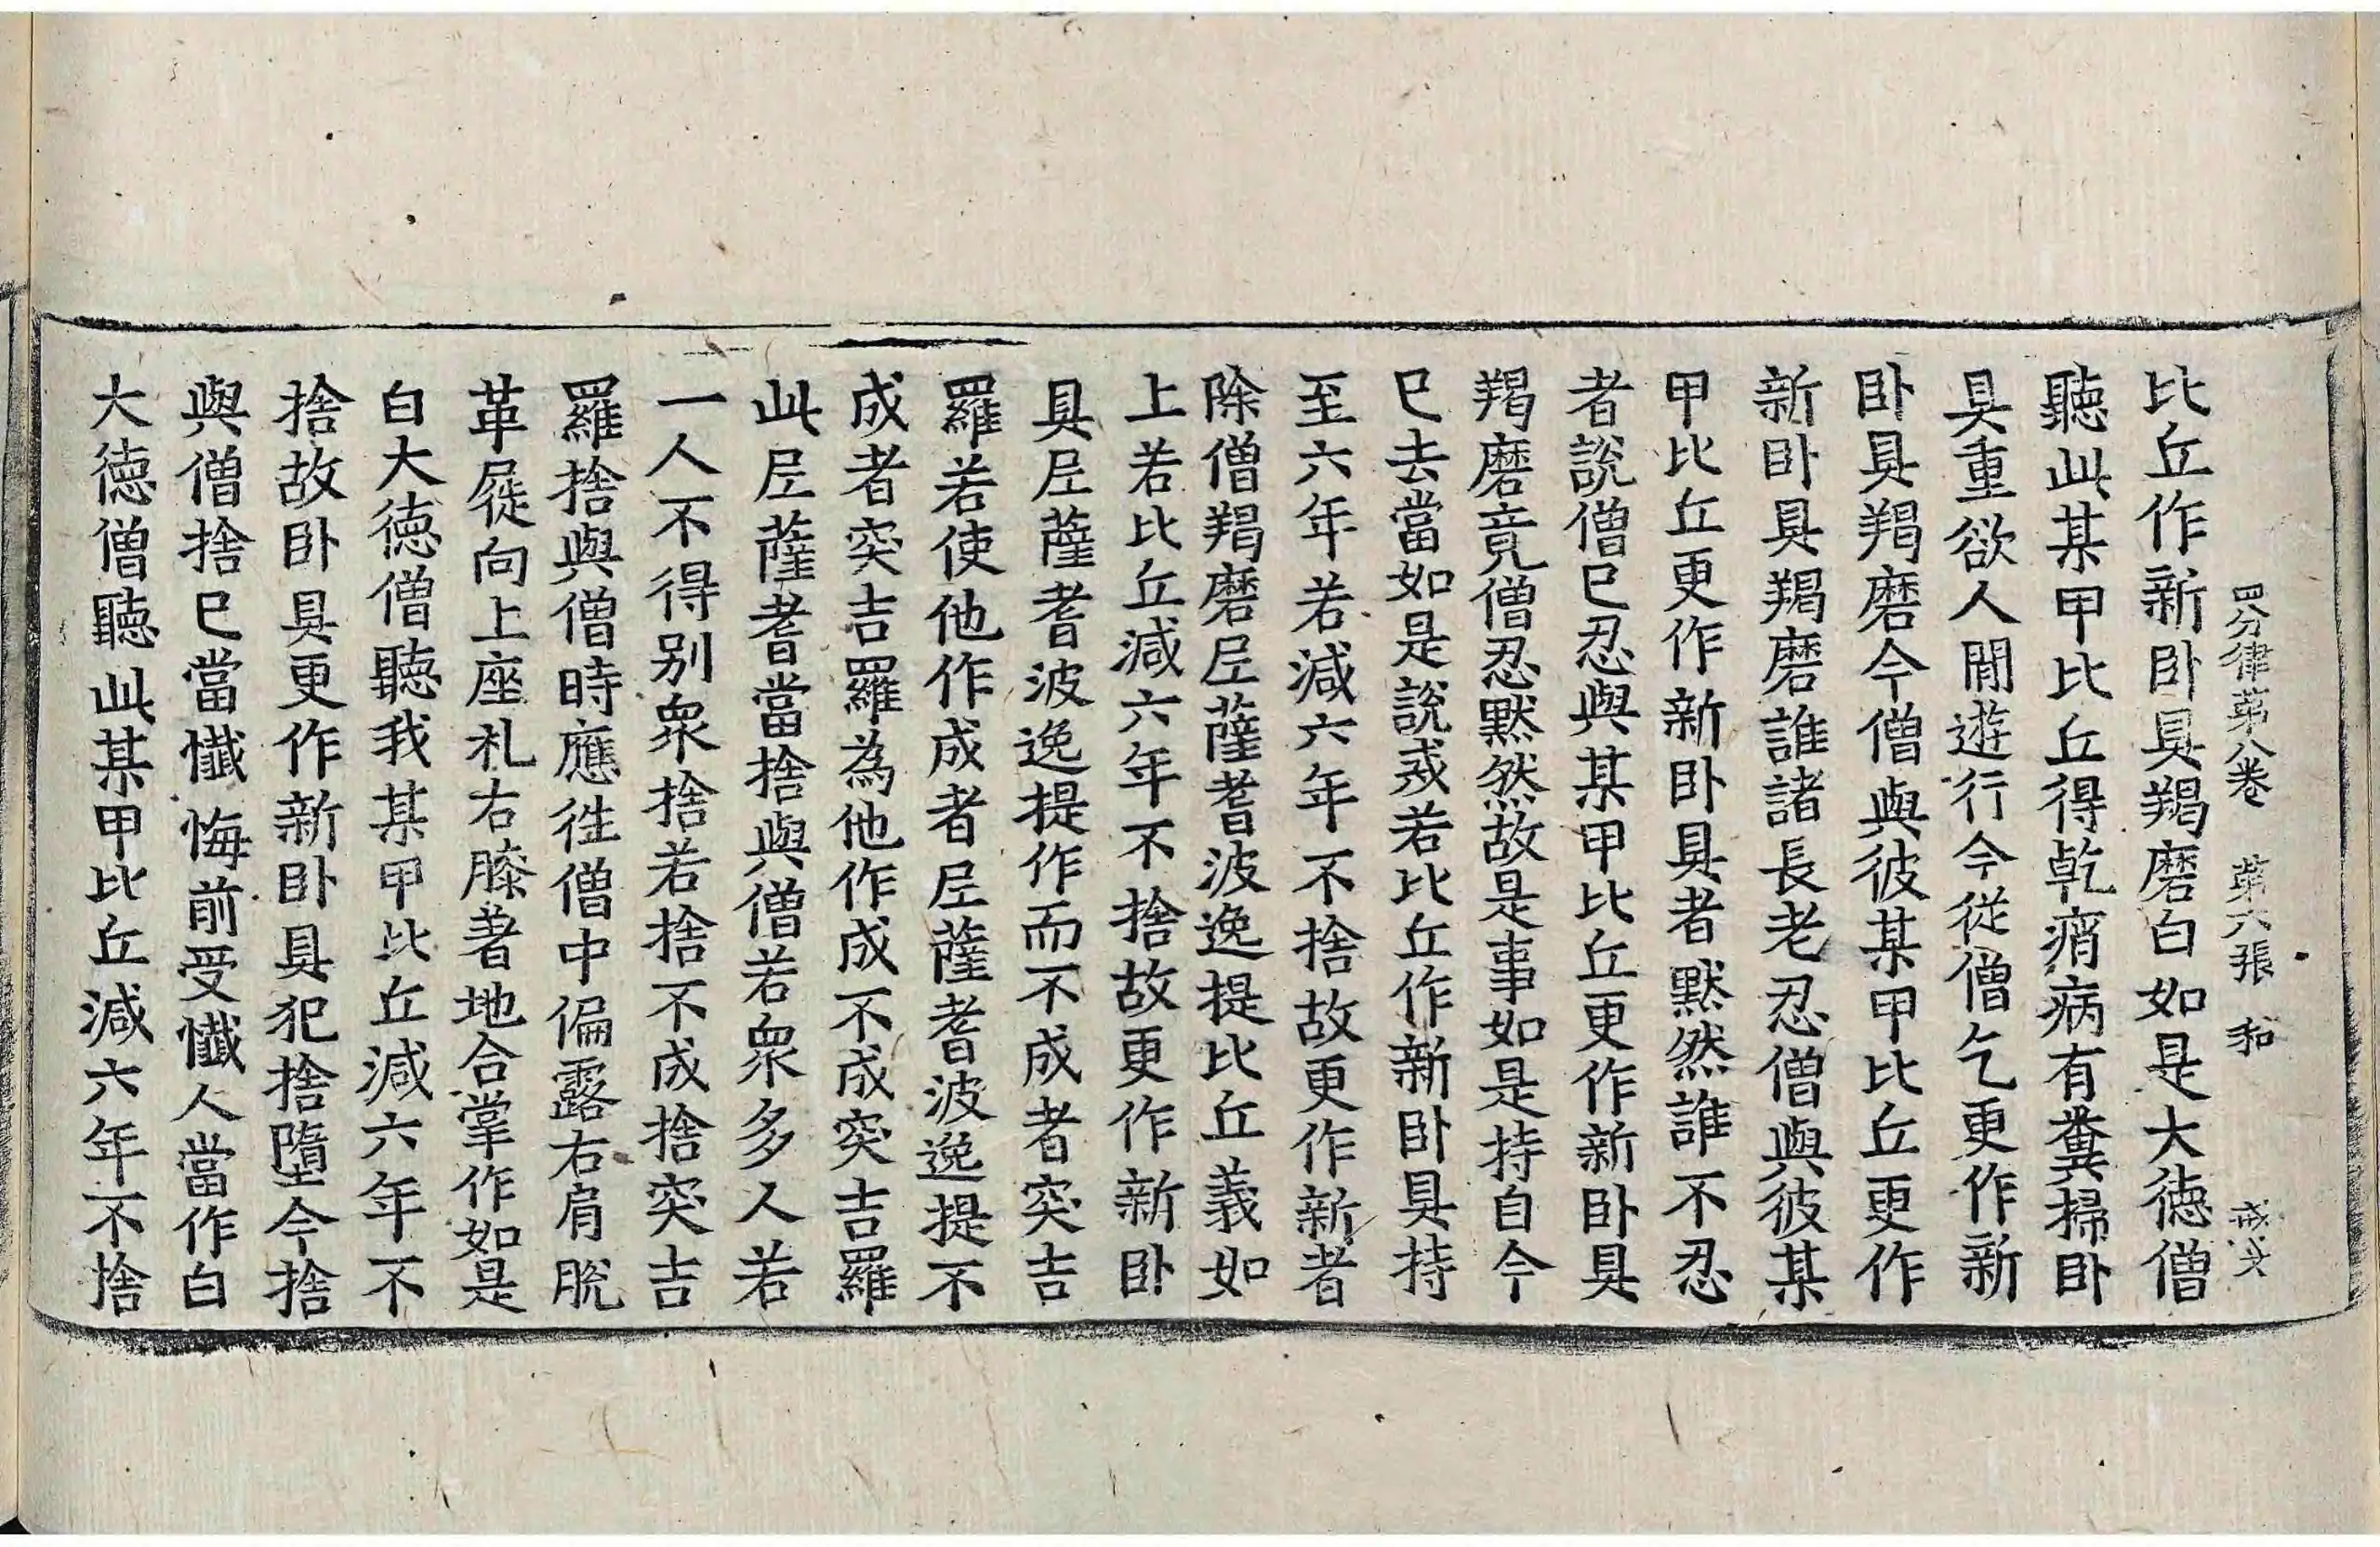 四分律第八卷　第六張　和
比丘作新卧具羯磨白如是大德僧
聽此某甲比丘得乾痟病有糞掃卧
具重欲人間遊行今從僧乞更作新
卧具羯磨今僧與彼某甲比丘更作
新卧具羯磨誰諸長老忍僧與彼某
甲比丘更作新卧具者默然誰不忍
者說僧巳忍與某甲比丘更作新卧具
羯磨竟僧忍默然故是事如是持自今
巳去當如是說戒若比丘作新卧具持
至六年若減六年不捨故更作新者
除僧羯磨尼薩耆波逸提比丘義如
上若比丘減六年不捨故更作新卧
具尼薩耆波逸提作而不成者突吉
羅若使他作成者尼薩耆波逸提不
成者突吉羅為他作成不成突吉羅
此尼薩耆當捨與僧若眾多人若
一人不得別眾捨若捨不成捨突吉
羅捨與僧時應徃僧中偏露右肩脫
革屣向上座礼右膝著地合掌作如是
白大德僧聽我某甲比丘減六年不
捨故卧具更作新卧具犯捨墮今捨
與僧捨巳當懺悔前受懺人當作白
大德僧聽此某甲比丘減六年不捨